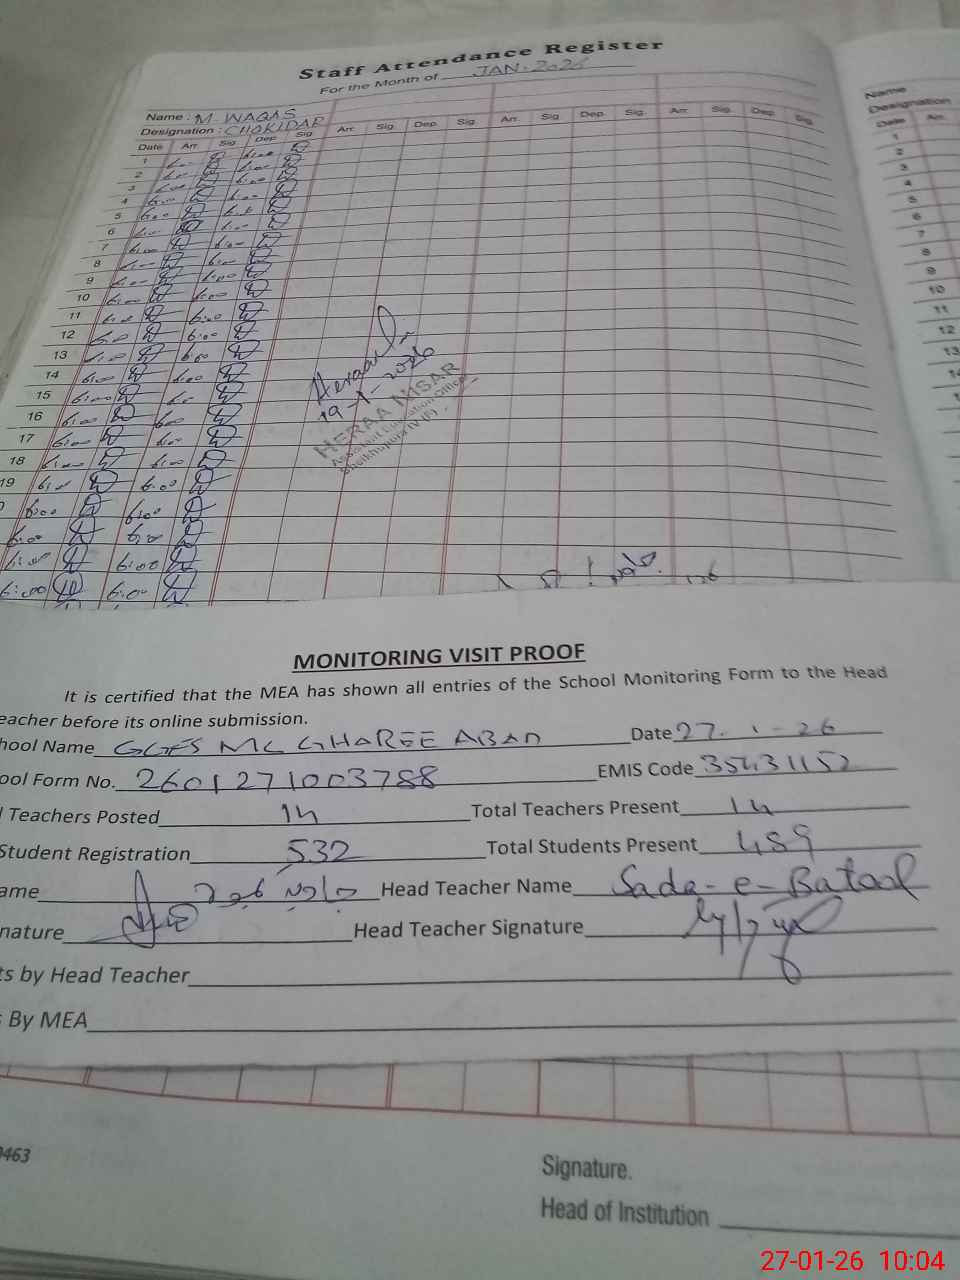 Staff Attendance Register
For the Month of JAN-2026
Name : M-WAQAS
Designation : CHOKIDAR
Date Arr. Sig. Dep. Sig. Arr. Sig. Dep. Sig. Arr. Sig. Dep. Sig. Arr. Sig. Dep. Sig.
1
2
3
4 6:00
5 6:00
6
7 6:00 6:00
8 6:00
9
10 6:00 6:00
11 6:00
12 6:00 6:00
13 6:00 6:00
14 6:00 6:00
15 6:00
16 6:00 6:00
17 6:00 6:00
18 6:00 6:00
19 6:00 6:00
6:00 6:00
6:00 6:00
6:00 6:00
6:00 6:00
19-1-2026
HERAA NISAR
Assistant Education Officer
Sheikhupura IV (F)
Name
Designation
Date Arr.
1
2
3
4
5
6
7
8
9
10
11
12
13
MONITORING VISIT PROOF
It is certified that the MEA has shown all entries of the School Monitoring Form to the Head
eacher before its online submission.
hool Name GGES MC GHAREEABAD Date 27-1-26
ool Form No. 2601271003788 EMIS Code 35431152
Teachers Posted 14 Total Teachers Present 14
Student Registration 532 Total Students Present 489
ame Head Teacher Name Sada-e-Batool
nature Head Teacher Signature
ts by Head Teacher
By MEA
0463
Signature.
Head of Institution
27-01-26 10:04